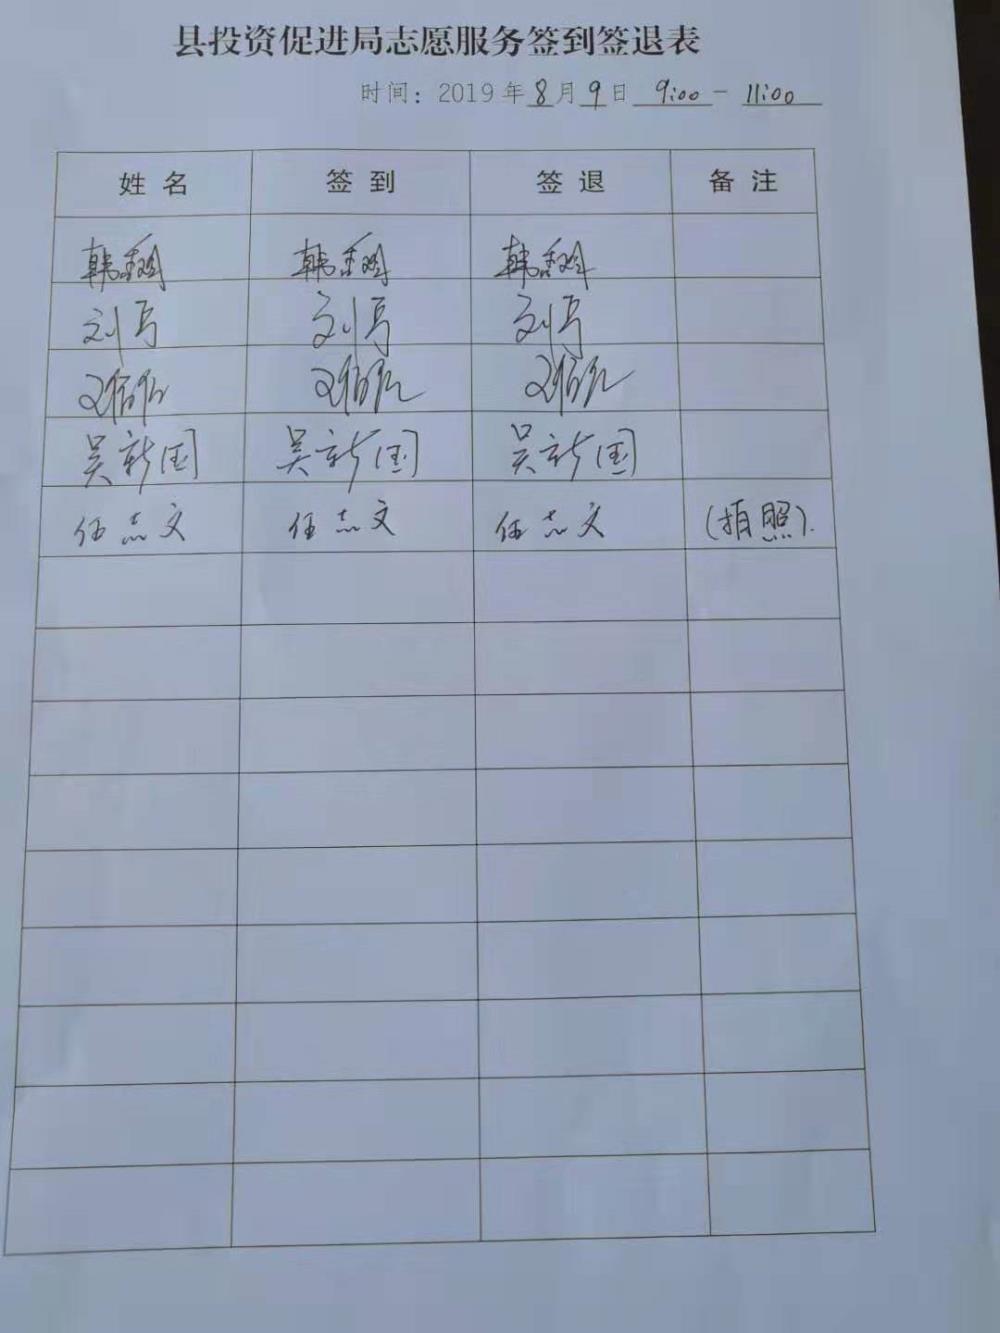 县投资促进局志愿服务签到签退表
时间：2019年8月9日 9:00 - 11:00
姓名 签到 签退 备注
韩 韩 韩
刘 刘 刘
吴新国 吴新国 吴新国
任志文 任志文 任志文 (拍照).